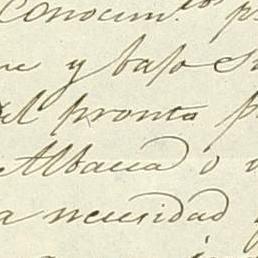 Conocim.to p
y bajo su
el pronto p
Albacea o
a necesidad